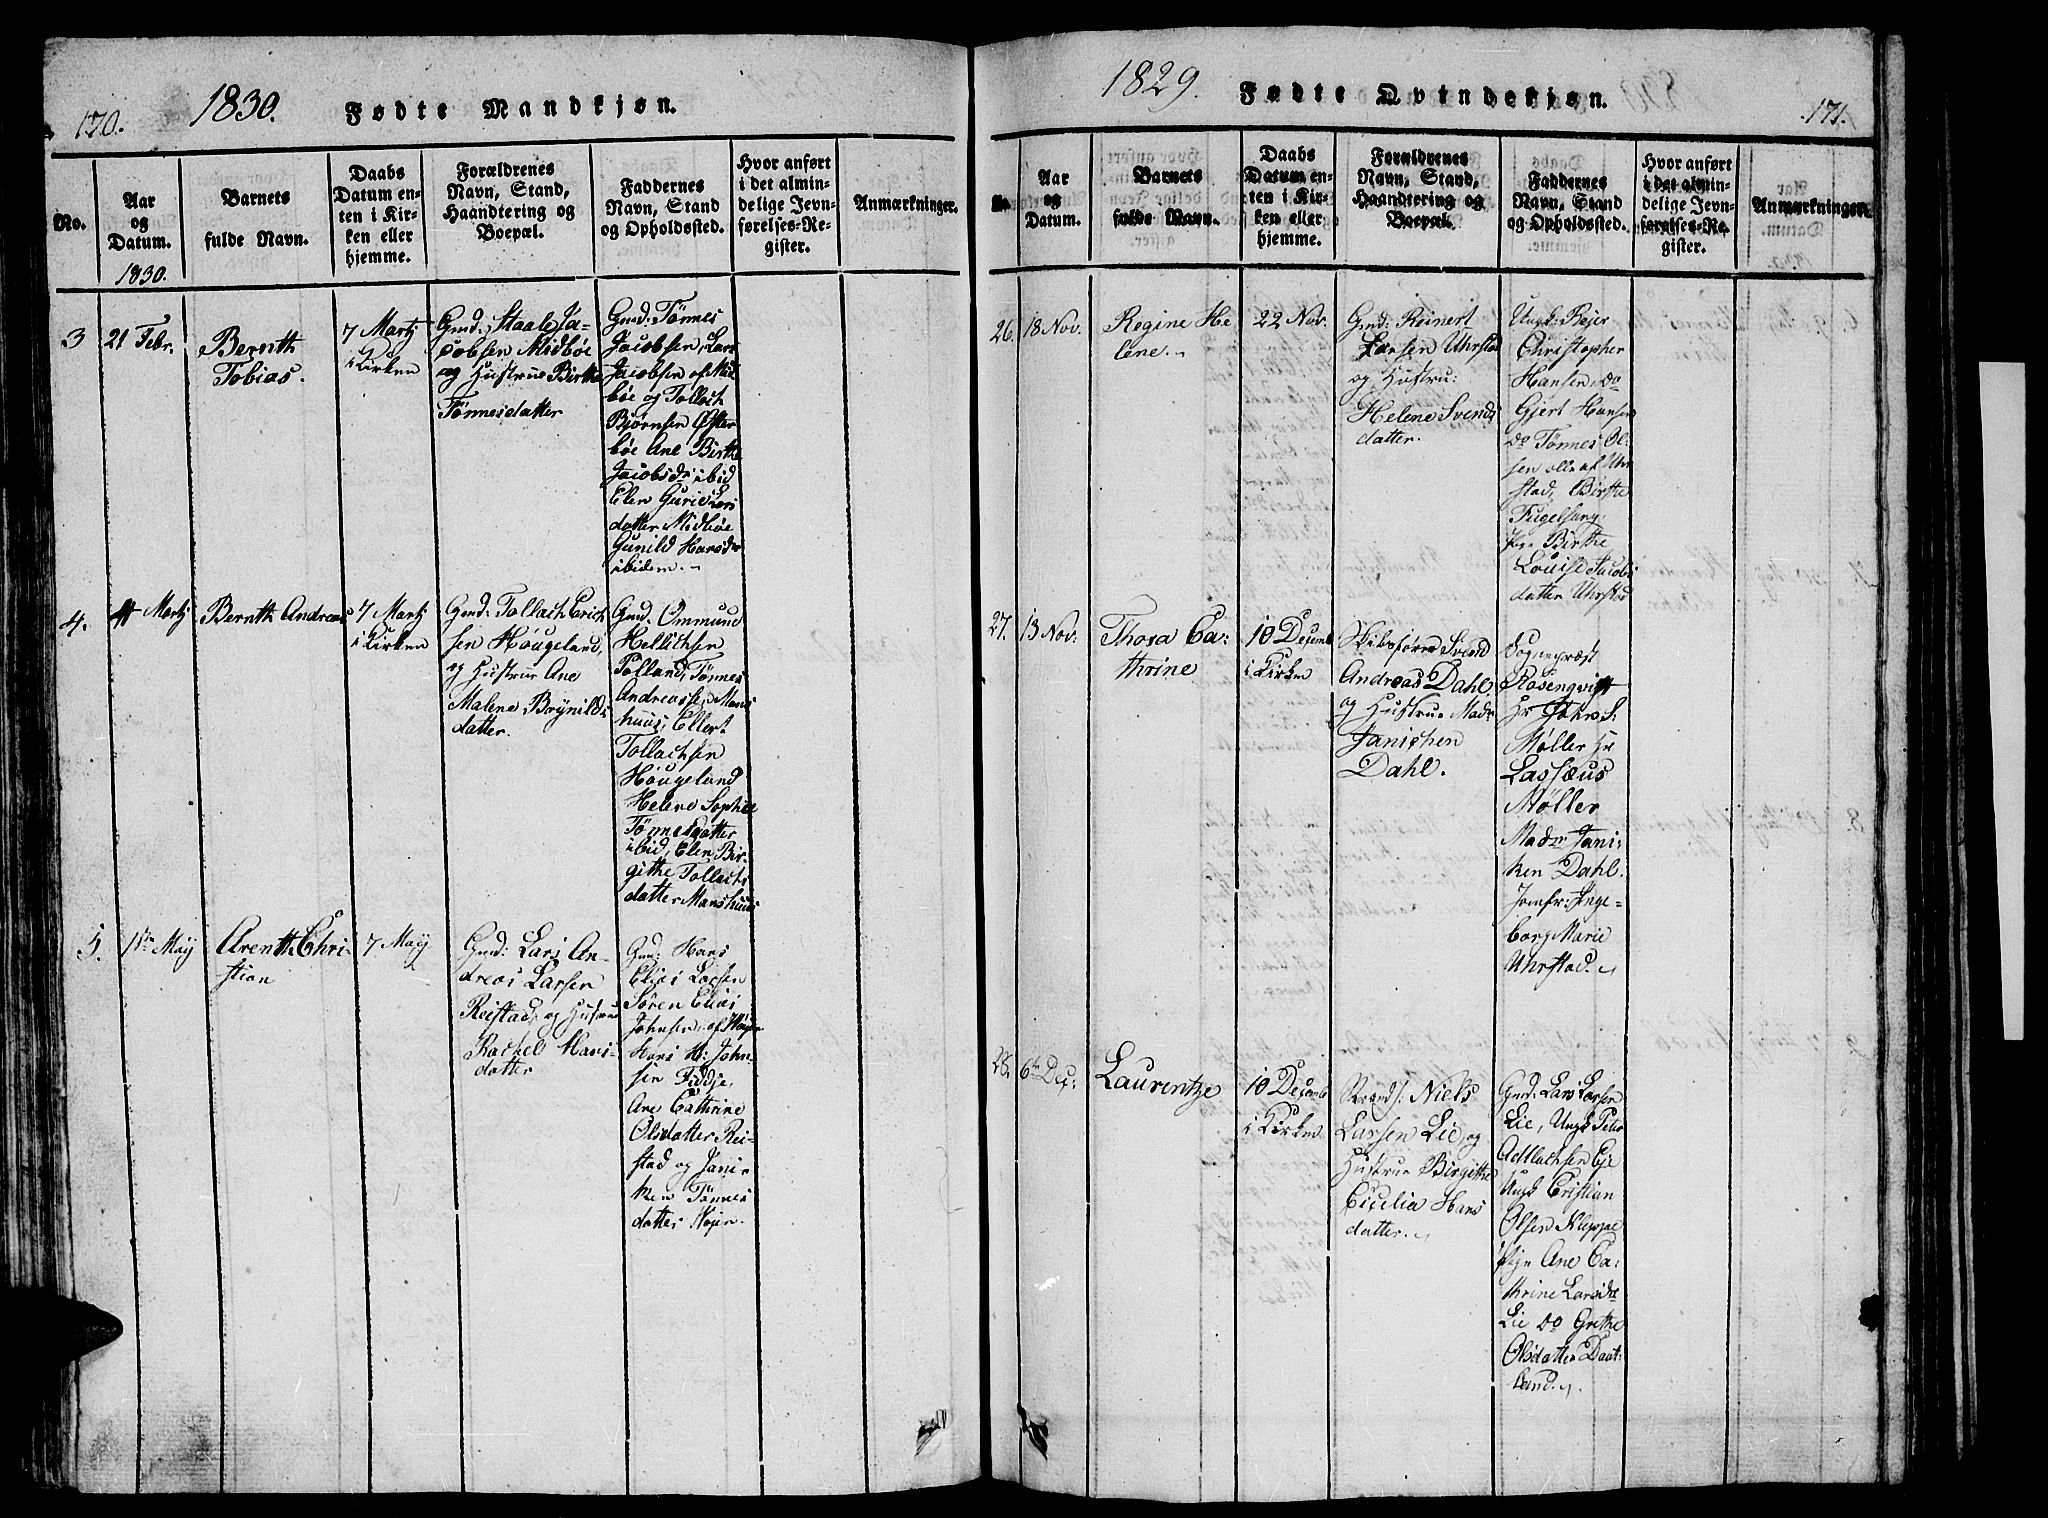 170.
1830.
Fødte Mandkjøn.
No.
Aar
og
Datum.
1830.
Barnets
fulde Navn.
Daabs
Datum en-
ten i Kir-
ken eller
hjemme.
Forældrenes
Navn, Stand,
Haandtering og
Boepæl.
Faddernes
Navn, Stand
og Opholdssted.
Hvor anført
i det almin-
delige Jevn-
førelses-Re-
gister.
Anmærkninger.
3
21 Febr.
Bernth
Tobias.
7 Martj
i Kirken
Gmd: Staale Ja-
cobsen Midbøe
og Hustrue Birthe
Tönnesdatter
Gmd: Tönnes
Jacobsen, Lars
Jacobsen af Mid
bøe og Tollach
Bjørnsen Øster
bøe Ane Birthe
Jacobsdr ibid
Elen Gurid Lars
datter Midbøe
Gunild Hansdr
ibidem.
4.
Martj
Bernth Andreas
7 Martj
i Kirken
Gmd: Tollach Erich
sen Höugeland,
og Hustrue Ane
Malene Brynilds
datter.
Gmd. Ommund
Hellichsen
Polland, Tönnes
Andreassen Mons
huus, Ellert
Tollachsen
Höugeland
Helene Sophie
Tönnesdatter
ibid, Elen Bir-
githe Tollachs
datter Monshuus
5.
1ste Maij
Arenth Chri-
stian
7 Maij
Gmd: Lars An-
dreas Larsen
Reistad, og Hustrue
Rachel Hans-
datter
Gmd: Hans
Elias Larsen
Sören Elias
Johnsen af Højen
Hans H: John-
sen Fidje,
Ane Cathrine
Olsdatter Rei-
stad og Jani-
ken Tönnes
datter Højen.
1829.
Fødte Qvindekjøn.
171.
No.
Aar
og
Datum.
Barnets
fulde Navn.
Daabs
Datum en-
ten i Kir-
ken eller
hjemme.
Forældrenes
Navn, Stand,
Haandtering og
Boepæl.
Faddernes
Navn, Stand
og Opholdssted.
Hvor anført
i det almin-
delige Jevn-
førelses-Re-
gister.
Anmærkninger.
26.
18 Nov.
Regine He
lene.
22 Nov.
Gmd: Reinert
Larsen Uhrstad
og Hustru:
Helene Svends
datter.
Ungk: Rejer
Christopher
Hansen, do
Gjert Hansen
do Tönnes Ol-
sen alle af Uhr
stad, Birthe
Fugelsang,
Pige Birthe
Louise Jacobs
datter Uhrstad
27.
13 Nov:
Thora Ca-
thrine
10 Decemb
i Kirken
Skibsförer Svend
Andreas Dahl,
og Hustrue Madm
Janichen
Dahl.
Sognepræst
Rosenqvist
Hr Johns S:
Møller Hr
Lassæus
Møller
Madm Jani-
ken Dahl.
Jomfr: Inge-
borg Marie
Uhrstad.
28.
6te Dec:
Laurentze
10 Decemb
i Kirken
Strands. Niels
Larsen Lie, og
Hustrue Birgithe
Cicelia Hans
datter.
Gmd: Lars Larsen
Lie, Ungk Peter
Adtlachsen Eje
Ungk Cristian
Olsen Kleppe
Pige Ane Ca-
thrine Larsdtr
Lie do Grethe
Olsdatter Daat-
land.